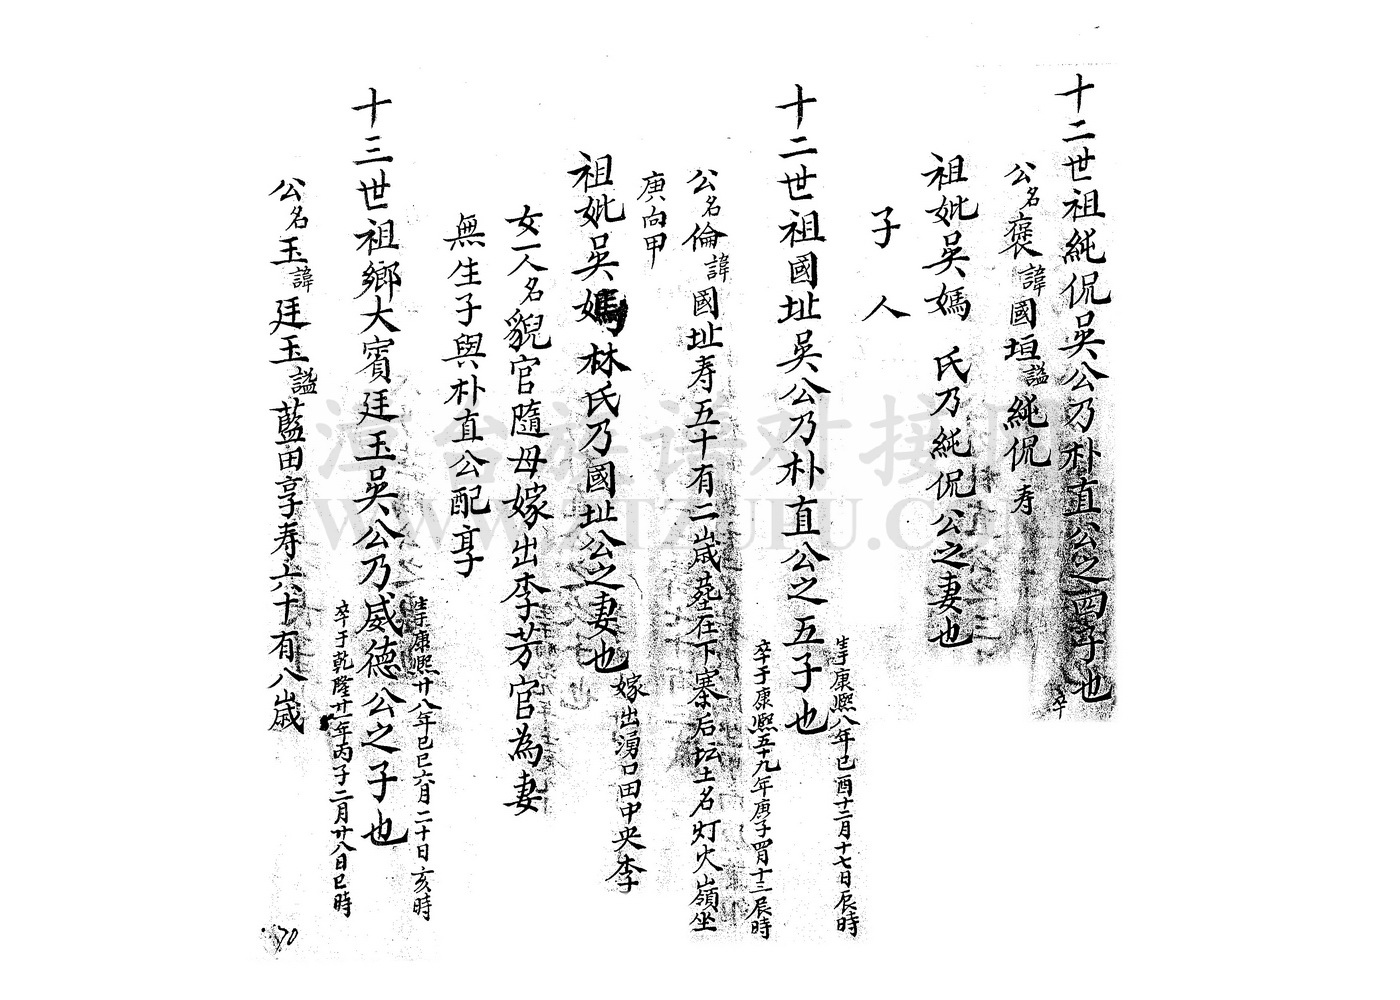 十二世祖純侃吳公乃朴直公之四子也
卒
公名褒諱國垣謚純侃 寿
祖妣吳媽 氏乃純侃公之妻也
子 人
生于康熙八年巳酉十二月十七日辰時
十二世祖國址吳公乃朴直公之五子也
卒于康熙五十九年庚子四月十三辰時
公名倫諱國址寿五十有二歲墓在下寨后坛土名灯火嶺坐
庚向甲
祖妣吳媽林氏乃國址公之妻也
嫁出湧口田中央李
女一人名貎官隨母嫁出李芳官為妻
無生子與朴直公配享
生于康熙廿八年巳巳六月二十日亥時
十三世祖鄉大賓廷玉吳公乃威德公之子也
卒于乾隆廿一年丙子二月廿八日巳時
公名玉諱廷玉謚藍田享寿六十有八歲
70
渲台族谱对接网
WWW.ZTZUPU.COM